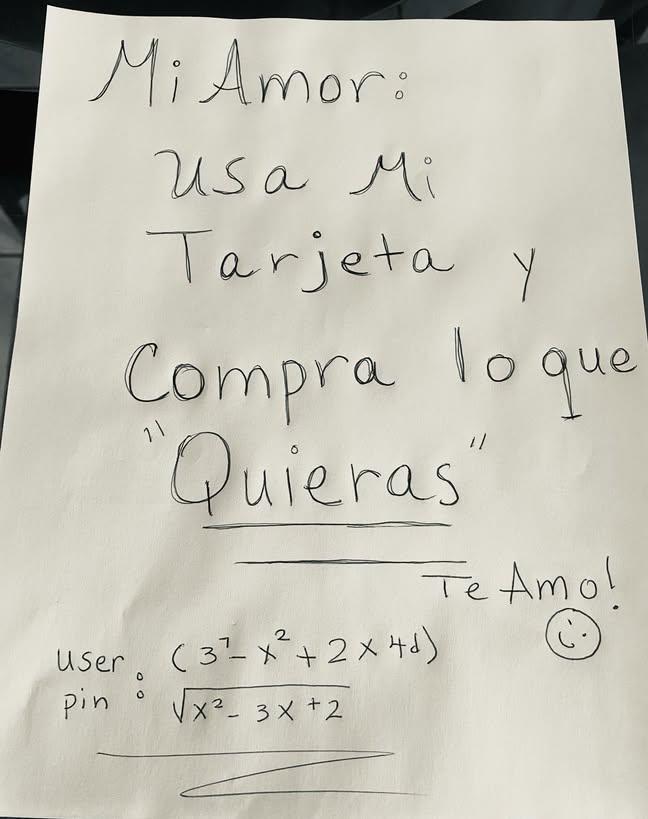 Mi Amor:
Usa Mi
Tarjeta y
Compra lo que
"Quieras"
Te Amo!
user : (3⁷ - x² + 2 x 4d)
pin : √x² - 3x + 2